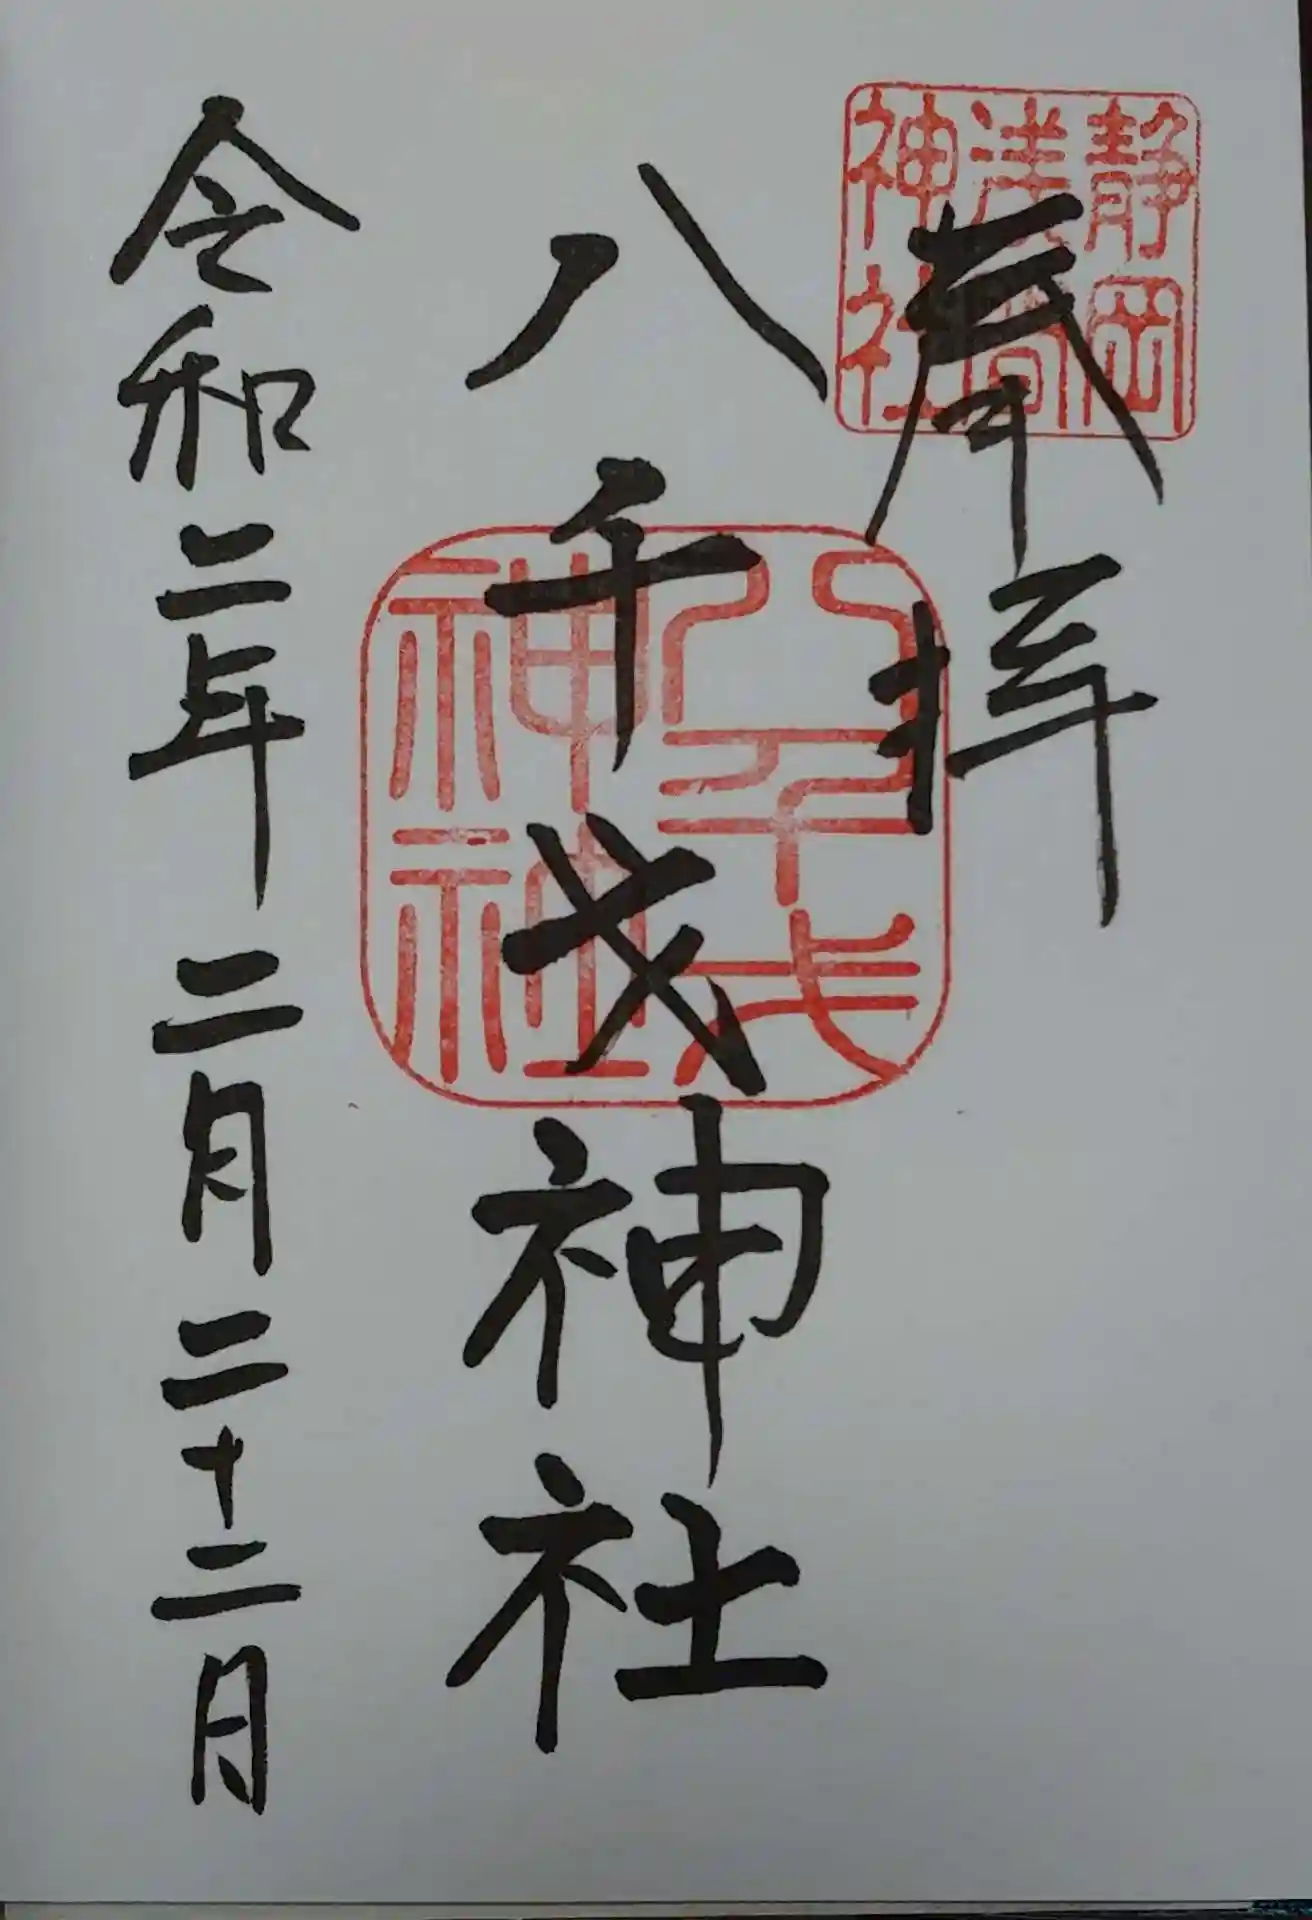 奉拝
静岡
浅間
神社
八千戈神社
八千戈
神社
令和二年二月二十二日